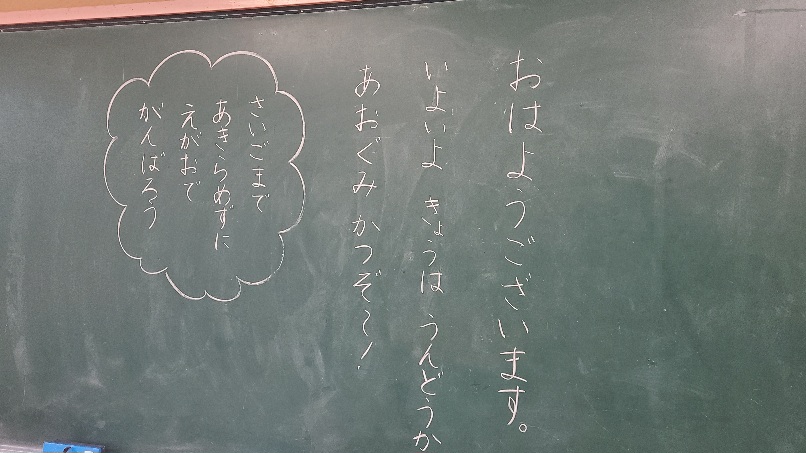 おはようございます。
いよいよ きょうは うんどうか
あおぐみ かつぞ〜!
さいごまで
あきらめずに
えがおで
がんばろう